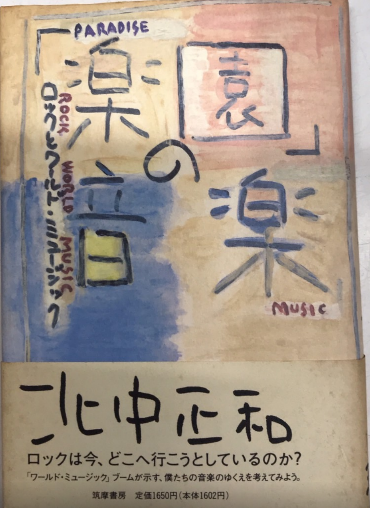 PARADISE
「楽園」
の
音楽
MUSIC
ROCK WORLD MUSIC
ロック・ワールド・ミュージック
北中正和
ロックは今、どこへ行こうとしているのか?
「ワールド・ミュージック」ブームが示す、僕たちの音楽のゆくえを考えてみよう。
筑摩書房 定価1650円(本体1602円)